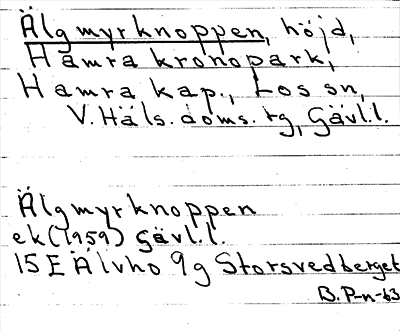 Älgmyrknoppen, höjd,
Hamra kronopark,
Hamra kap., Los sn,
V. Häls. doms. tg, Gävl.l.
Älgmyrknoppen
ek (1959) Gävl.l.
15 E Älvho 9g Storsvedberget
B. P-n-63